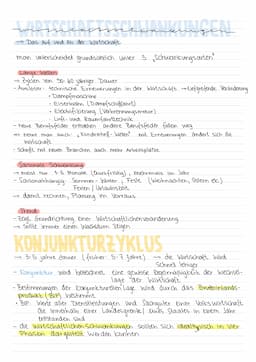 WIRTSCHAFTSSCHWANKUNGEN
→ Das Auf und Ab der Wirtschaft
man unterscheidet grundsätzlich unter 3 "Schwankungsarten"
Lange Wellen
→ Zyklen von 50-60 jähriger Dauer
→ Auslöser: technische Erneuerungen in der Wirtschaft → tiefgreifende Veränderung
• Dampfmaschine
• Eisenbahn (Dampfschifffahrt)
• Elektrifizierung (Verbrennungsmotor)
• Luft- und Raumfahrttechnik
→ Neue Berufsfelder entstehen, andere Berufsfelder fallen weg
→ neue man auch mit Erneuerungen ändert sich die
Wirtschaft
→ Schafft mit neuen Branchen auch mehr Arbeitsplätze
Saisonale Schwankung
→ meist nur 1-3 Monate, mehrmals im Jahr
→ Saisonabhängig: Sommer, Winter, Feste (Weihnachten, Ostern etc.)
Ferien / Urlaubszeit
→ damit rechnen, Planung im Voraus
Trend
→ Grundrichtung einer Wirtschaftlichen Veränderung
→ sollte immer einen Wachstum zeigen
KONJUNKTURZYKLUS
→ 3-5 Jahre Dauer (früher 5-7 Jahre) → die Wirtschaft wird
Schnell lebiger
• Konjunktur wird bezeichnet, eine gewisse Regelmässigkeit der Wechsel-
lage der Wirtschaft
• Bestimmungen der Konjunkturellen Lage wird durch das Bruttoinlands-
produkt (BIP) bestimmt
• BIP: Werte aller Dienstleistungen und Sachgüter einer Volkswirtschaft
die innerhalb einer Landesgrenze eines Staates in einem Jahr
entstanden sind
• die Wirtschaftlichen Schwankungen sollten sich idealtypisch in vier
Phasen dargestellt werden könnten